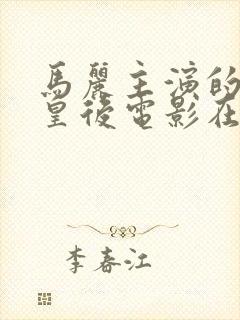 馬麗主演的
皇後電影在
李春江